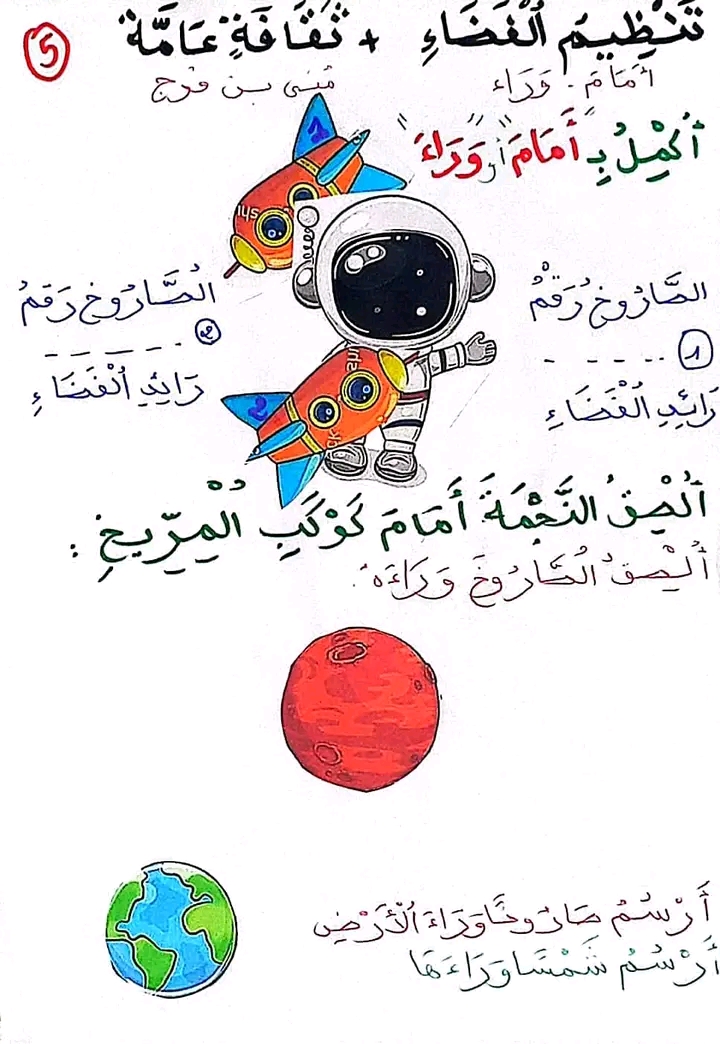 تَنْظِيمُ الْفَضَاءِ + ثَقَافَةٌ عَامَّةٌ
5
أَمَامَ - وَرَاءَ
منى بن فرج
أُكْمِلُ بِـ "أَمَامَ" أو "وَرَاءَ"
1
الصَّارُوخُ رَقْمُ
1 - - - -
رَائِدِ الْفَضَاءِ
الصَّارُوخُ رَقْمُ
2
- - - - -
رَائِدِ الْفَضَاءِ
2
أُلْصِقُ النَّجْمَةَ أَمَامَ كَوْكَبِ الْمِرِّيخِ :
أُلْصِقُ الصَّارُوخَ وَرَاءَهُ.
أَرْسُمُ صَارُوخًا وَرَاءَ الْأَرْضِ
أَرْسُمُ شَمْسًا وَرَاءَهَا